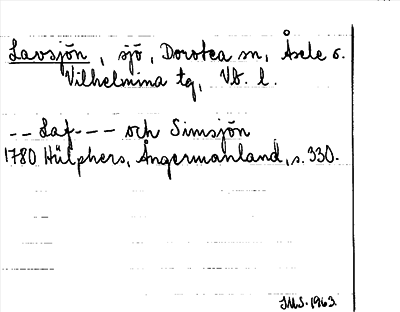 Lavsjön, sjö, Dorotea sn, Åsele o.
Vilhelmina tg, Vb. l.
-- Laf--- och Simsjön
1780 Hülphers, Ångermanland, s. 330.
IMS. 1963.